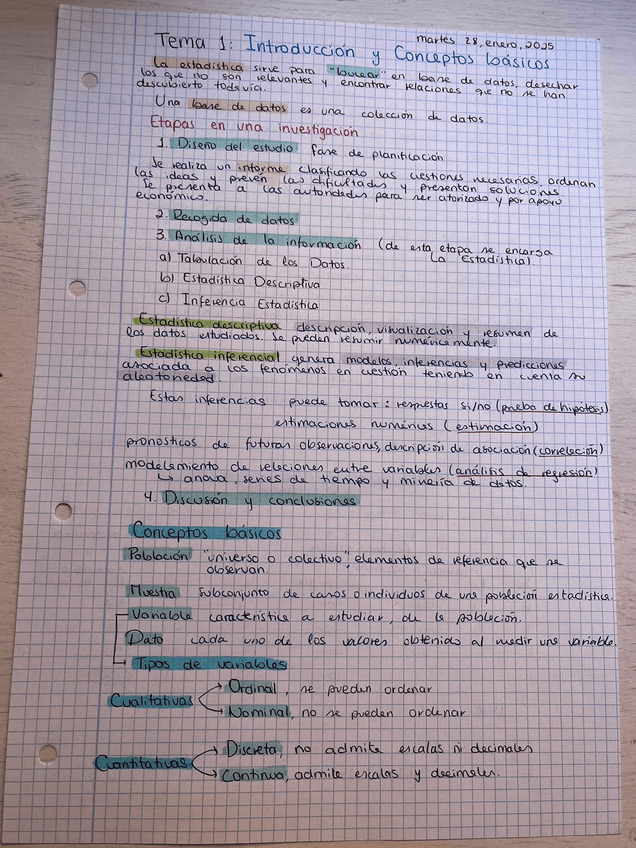 martes 28, enero, 2025
Tema 1: Introducción y Conceptos básicos
La estadística sirve para "bucear" en base de datos, desechar
los que no son relevantes y encontrar relaciones que no se han
descubierto todavía.
Una base de datos es una colección de datos.
Etapas en una investigación
1. Diseño del estudio fase de planificación
Se realiza un informe clasificando las cuestiones necesarias, ordenan
las ideas y prevén las dificultades y presentan soluciones.
Se presenta a las autoridades para ser atorizado y por apoyo
económico.
2. Recogida de datos
3. Análisis de la información (de esta etapa se encarga
la Estadística).
a) Tabulación de los Datos.
b) Estadística Descriptiva
c) Inferencia Estadística
Estadística descriptiva descripción, visualización y resumen de
los datos estudiados. Se pueden resumir numéricamente.
Estadística inferencial genera modelos, inferencias y predicciones
asociada a los fenómenos en cuestión teniendo en cuenta su
aleatoriedad.
Estas inferencias puede tomar: respuestas si/no (prueba de hipótesis)
estimaciones numéricas (estimación)
pronósticos de futuras observaciones, descripción de asociación (correlación)
modelamiento de relaciones entre variables (análisis de regresión)
↳ anova, series de tiempo y minería de datos.
4. Discusión y conclusiones
Conceptos básicos
Población "universo o colectivo", elementos de referencia que se
observan.
Muestra subconjunto de casos o individuos de una población estadística.
Variable característica a estudiar, de la población.
Dato cada uno de los valores obtenido al medir una variable.
Tipos de variables
Cualitativas
Ordinal, se pueden ordenar
Nominal, no se pueden ordenar
Cuantitativas
Discreta, no admite escalas ni decimales
Continua, admite escalas y decimales.